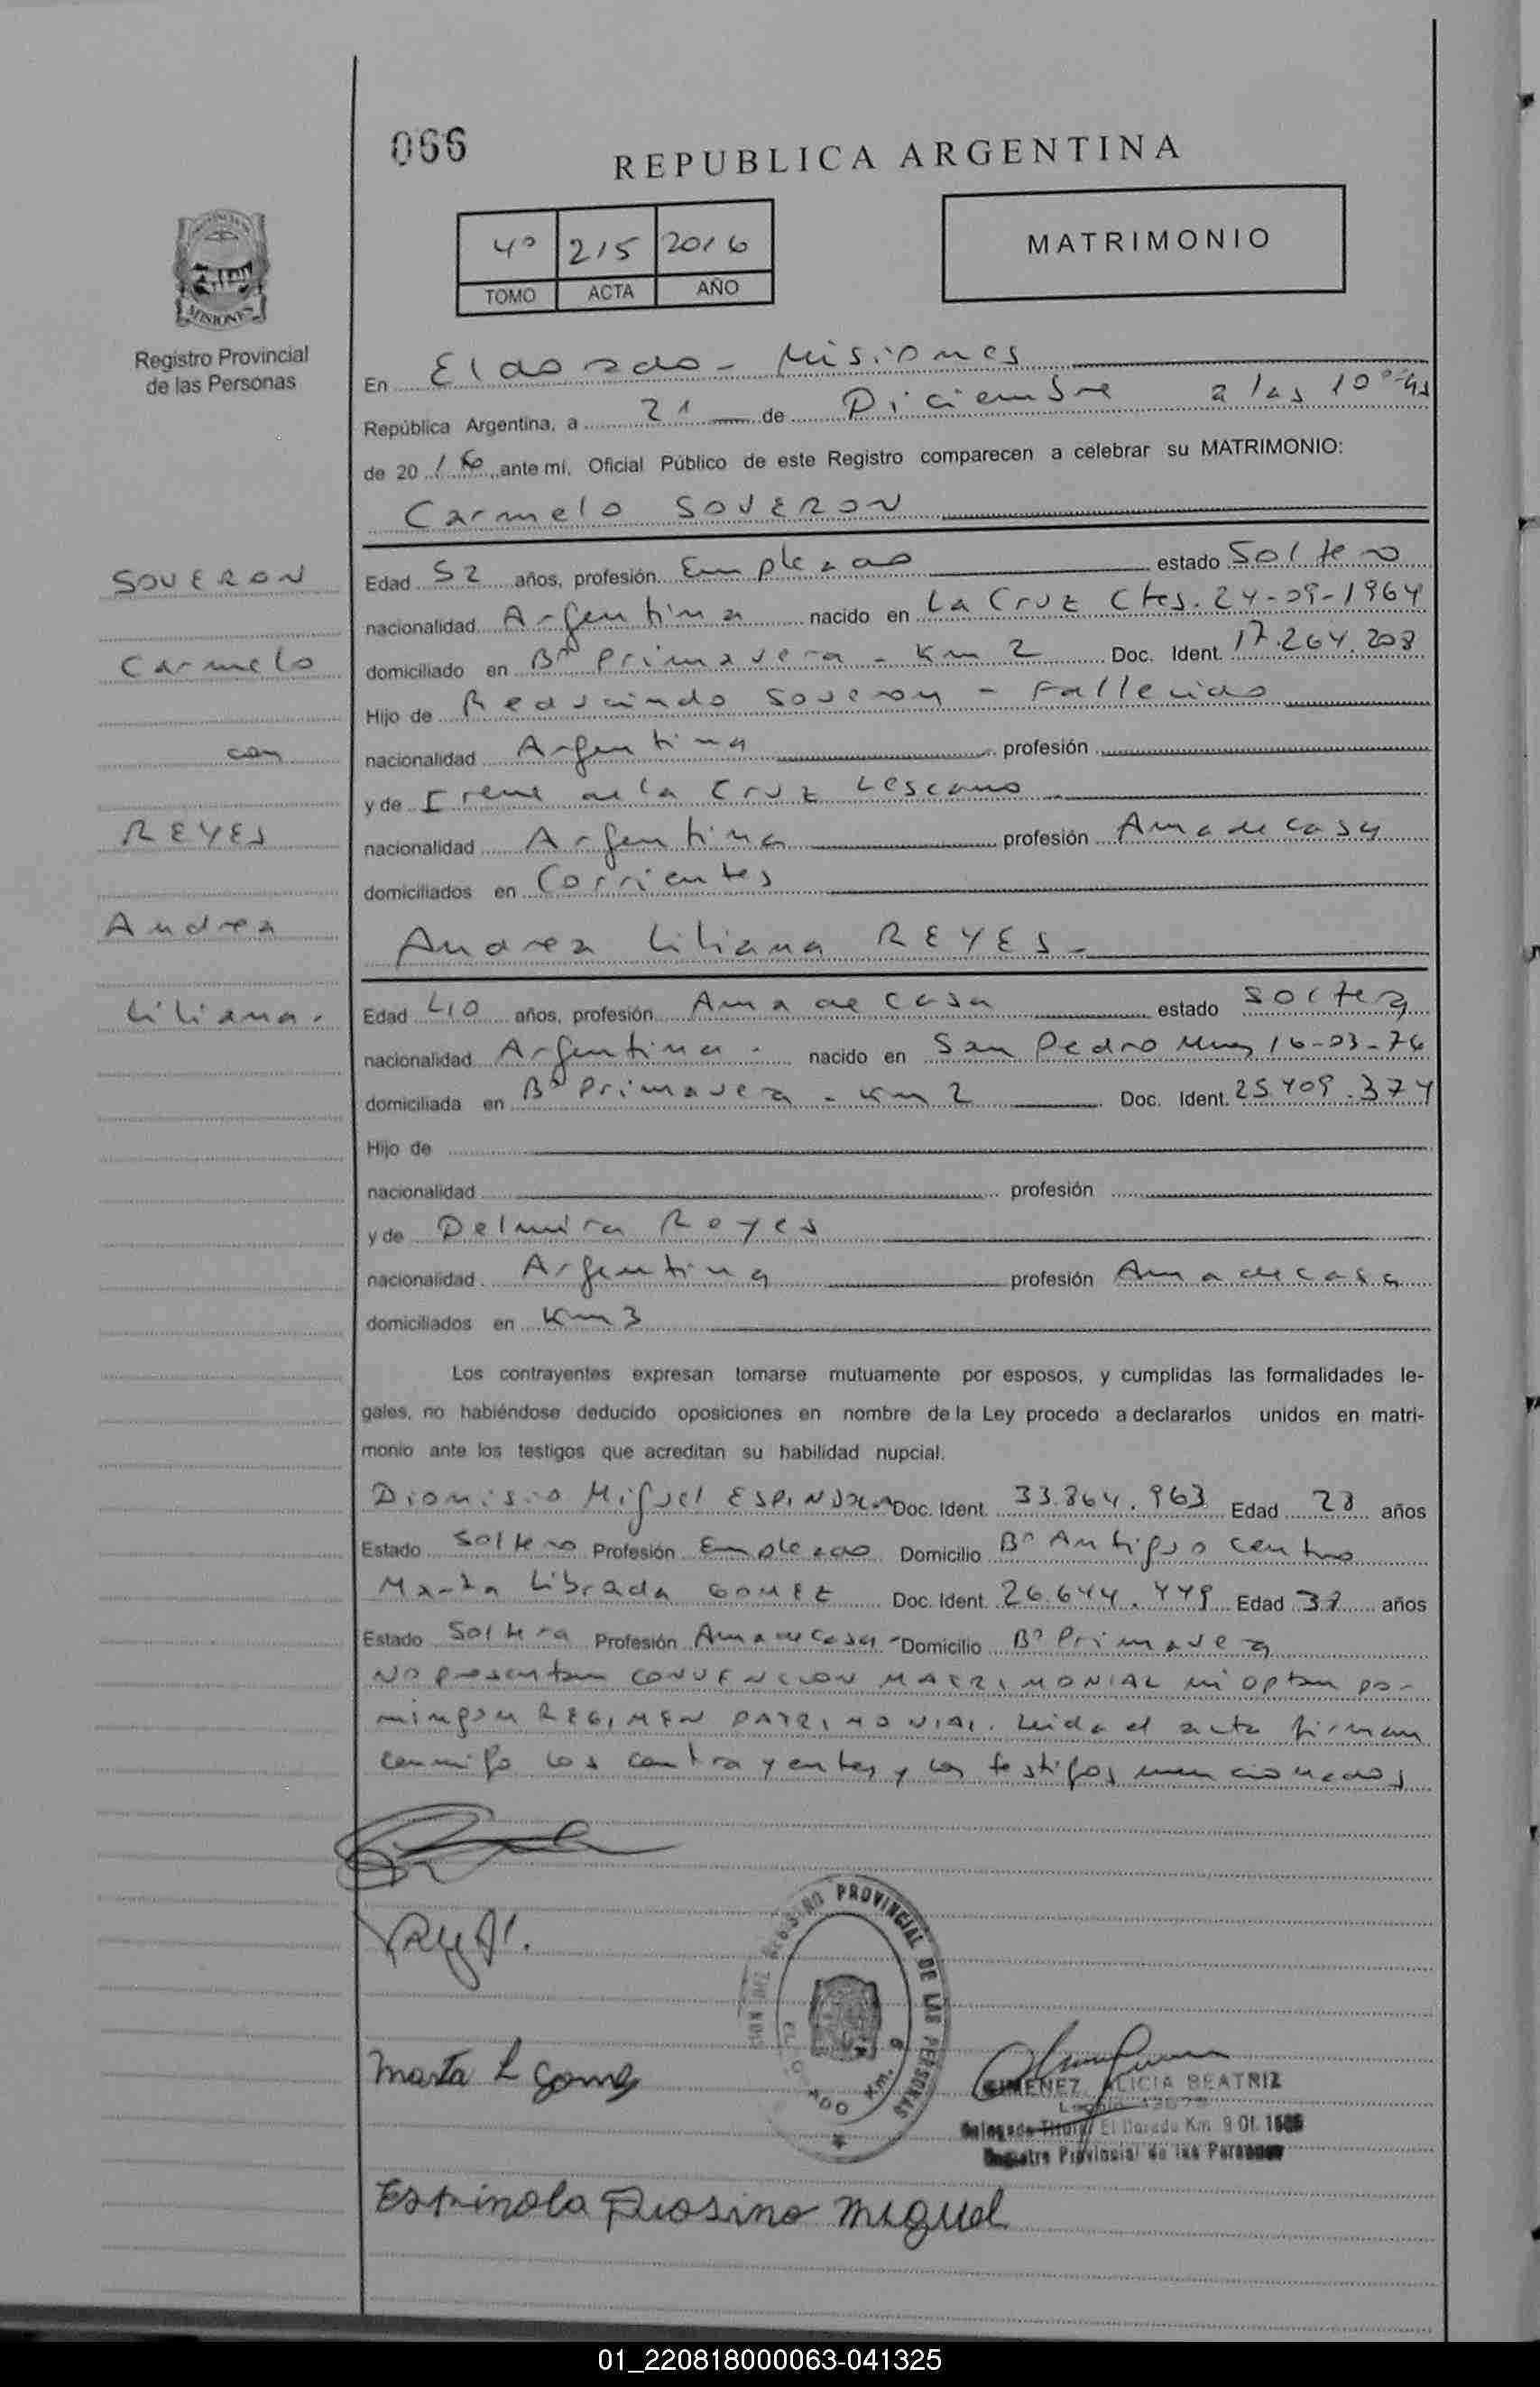 066
REPUBLICA ARGENTINA
4º 215 2016
TOMO ACTA AÑO
MATRIMONIO
MISIONES
Registro Provincial
de las Personas
En Eldorado - Misiones
República Argentina, a 21 de Diciembre a las 10ºº hs
de 2016 ante mí, Oficial Público de este Registro comparecen a celebrar su MATRIMONIO:
Carmelo SOVERON
SOVERON
Carmelo
con
REYES
Andrea
Liliana.
Edad 52 años, profesión Empleado estado Soltero
nacionalidad Argentina nacido en La Cruz Ctes. 24-09-1964
domiciliado en Bº Primavera - Km 2 Doc. Ident. 17.264.208
Hijo de Reducindo Soveron - Fallecido
nacionalidad Argentina profesión
y de Irene de la Cruz Lescano
nacionalidad Argentina profesión Ama de casa
domiciliados en Corrientes
Andrea Liliana REYES -
Edad 40 años, profesión Ama de casa estado soltera
nacionalidad Argentina. nacido en San Pedro Mnes 16-03-76
domiciliada en Bº Primavera - Km 2 Doc. Ident. 25.409.374
Hijo de
nacionalidad profesión
y de Delmira Reyes
nacionalidad Argentina profesión Ama de casa
domiciliados en Km 3
Los contrayentes expresan tomarse mutuamente por esposos, y cumplidas las formalidades le-
gales, no habiéndose deducido oposiciones en nombre de la Ley procedo a declararlos unidos en matri-
monio ante los testigos que acreditan su habilidad nupcial.
Dionisio Miguel ESPINDOLA Doc. Ident. 33.864.963 Edad 28 años
Estado Soltero Profesión Empleado Domicilio Bº Antiguo centro
Marta Librada GOMEZ Doc. Ident. 26.644.449 Edad 37 años
Estado Soltera Profesión Ama de casa - Domicilio Bº Primavera
No presentan CONVENCION MATRIMONIAL ni optan por
ningún REGIMEN PATRIMONIAL. Leida el acta firman
conmigo los contrayentes y los testigos mencionados
PROVINCIAL DE LAS PERSONAS
Km. 9
Marta L Gomez
GIMENEZ ALICIA BEATRIZ
Delegada Titular El Dorado Km 9 Of. 1606
Registro Provincial de las Personas
Espinola Diosino Miguel
01_220818000063-041325